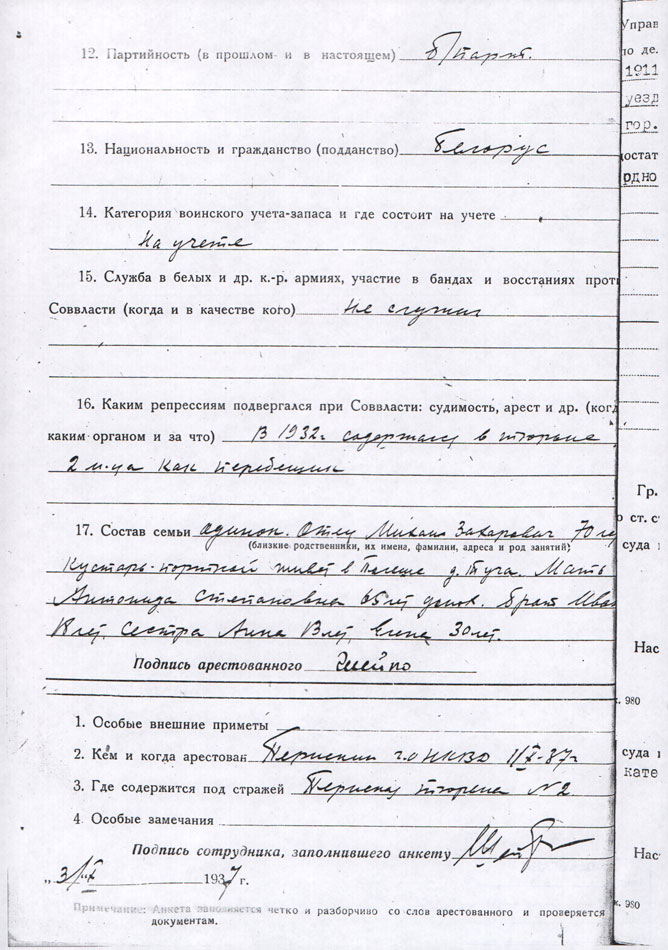 12. Партийность (в прошлом и в настоящем) б/парт.
13. Национальность и гражданство (подданство) Белорус
14. Категория воинского учета-запаса и где состоит на учете
На учете
15. Служба в белых и др. к.-р. армиях, участие в бандах и восстаниях проти
Соввласти (когда и в качестве кого) не служил
16. Каким репрессиям подвергался при Соввласти: судимость, арест и др. (когд
каким органом и за что) В 1932г содержался в тюрьме
2 м-ца как перебещик
17. Состав семьи одинок. Отец Михаил Захарович 70 ле
(близкие родственники, их имена, фамилии, адреса и род занятий)
Кустарь-портной живет в Польше д. Туча. Мать
Степановна 65 лет домох. брат Ива
18 лет, сестра Анна 13 лет, Елена 30 лет.
Подпись арестованного
1. Особые внешние приметы
2. Кем и когда арестован Пермским г.о НКВД 1/X-37г
3. Где содержится под стражей Пермская тюрьма N2
4 Особые замечания
Подпись сотрудника, заполнившего анкету
„3/X 1937 г.
Примечание: Анкета заполняется четко и разборчиво со слов арестованного и проверяется
документам.
Управ
по де.
1911
уезд
гор.
остат
одно
Гр.
о ст. с
суда
Нас
к. 980
суда
кате
Нас
к. 980